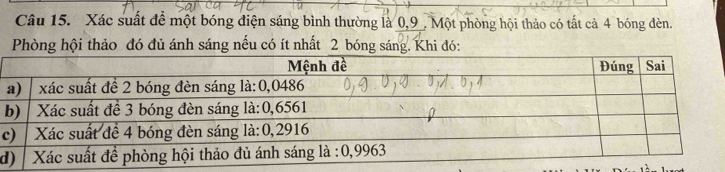 Câu 15. Xác suất để một bóng điện sáng bình thường là 0,9 . Một phòng hội thảo có tất cả 4 bóng đèn.
Phòng hội thảo đó đủ ánh sáng nếu có ít nhất 2 bóng sáng. Khi đó:
Mệnh đề Đúng Sai
a) xác suất để 2 bóng đèn sáng là:0,0486 0,9.0,9.0,1.0,1
b) Xác suất để 3 bóng đèn sáng là:0,6561
c) Xác suất để 4 bóng đèn sáng là:0,2916
d) Xác suất để phòng hội thảo đủ ánh sáng là :0,9963